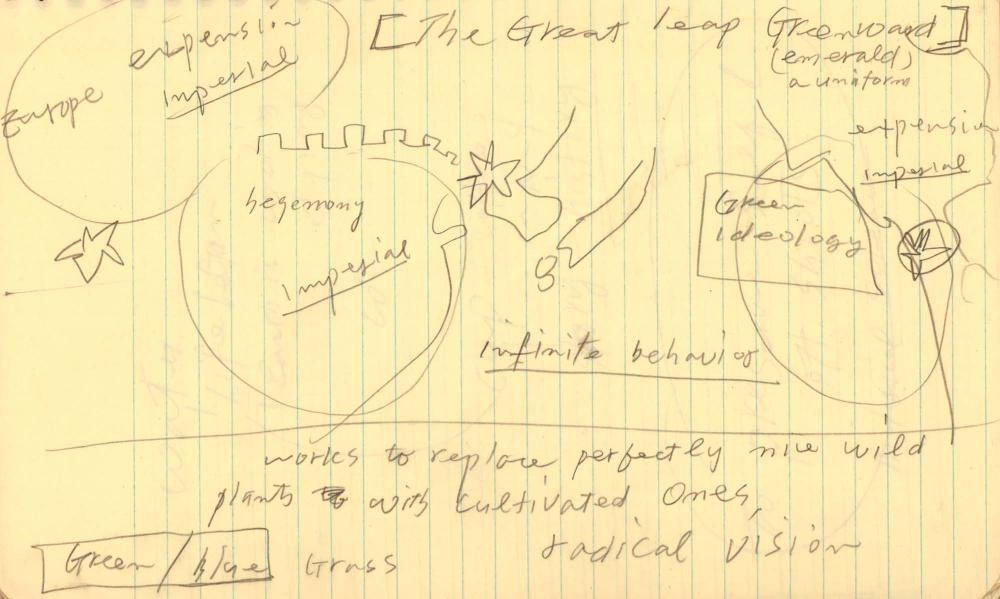 [The Great leap Greenward]
(emerald)
a uniform
expension
imperial
Europe
expension
imperial
hegemony
imperial
Green
ideology
infinite behavior
works to replace perfectly nice wild
plants with cultivated ones,
radical vision
Green/blue Grass